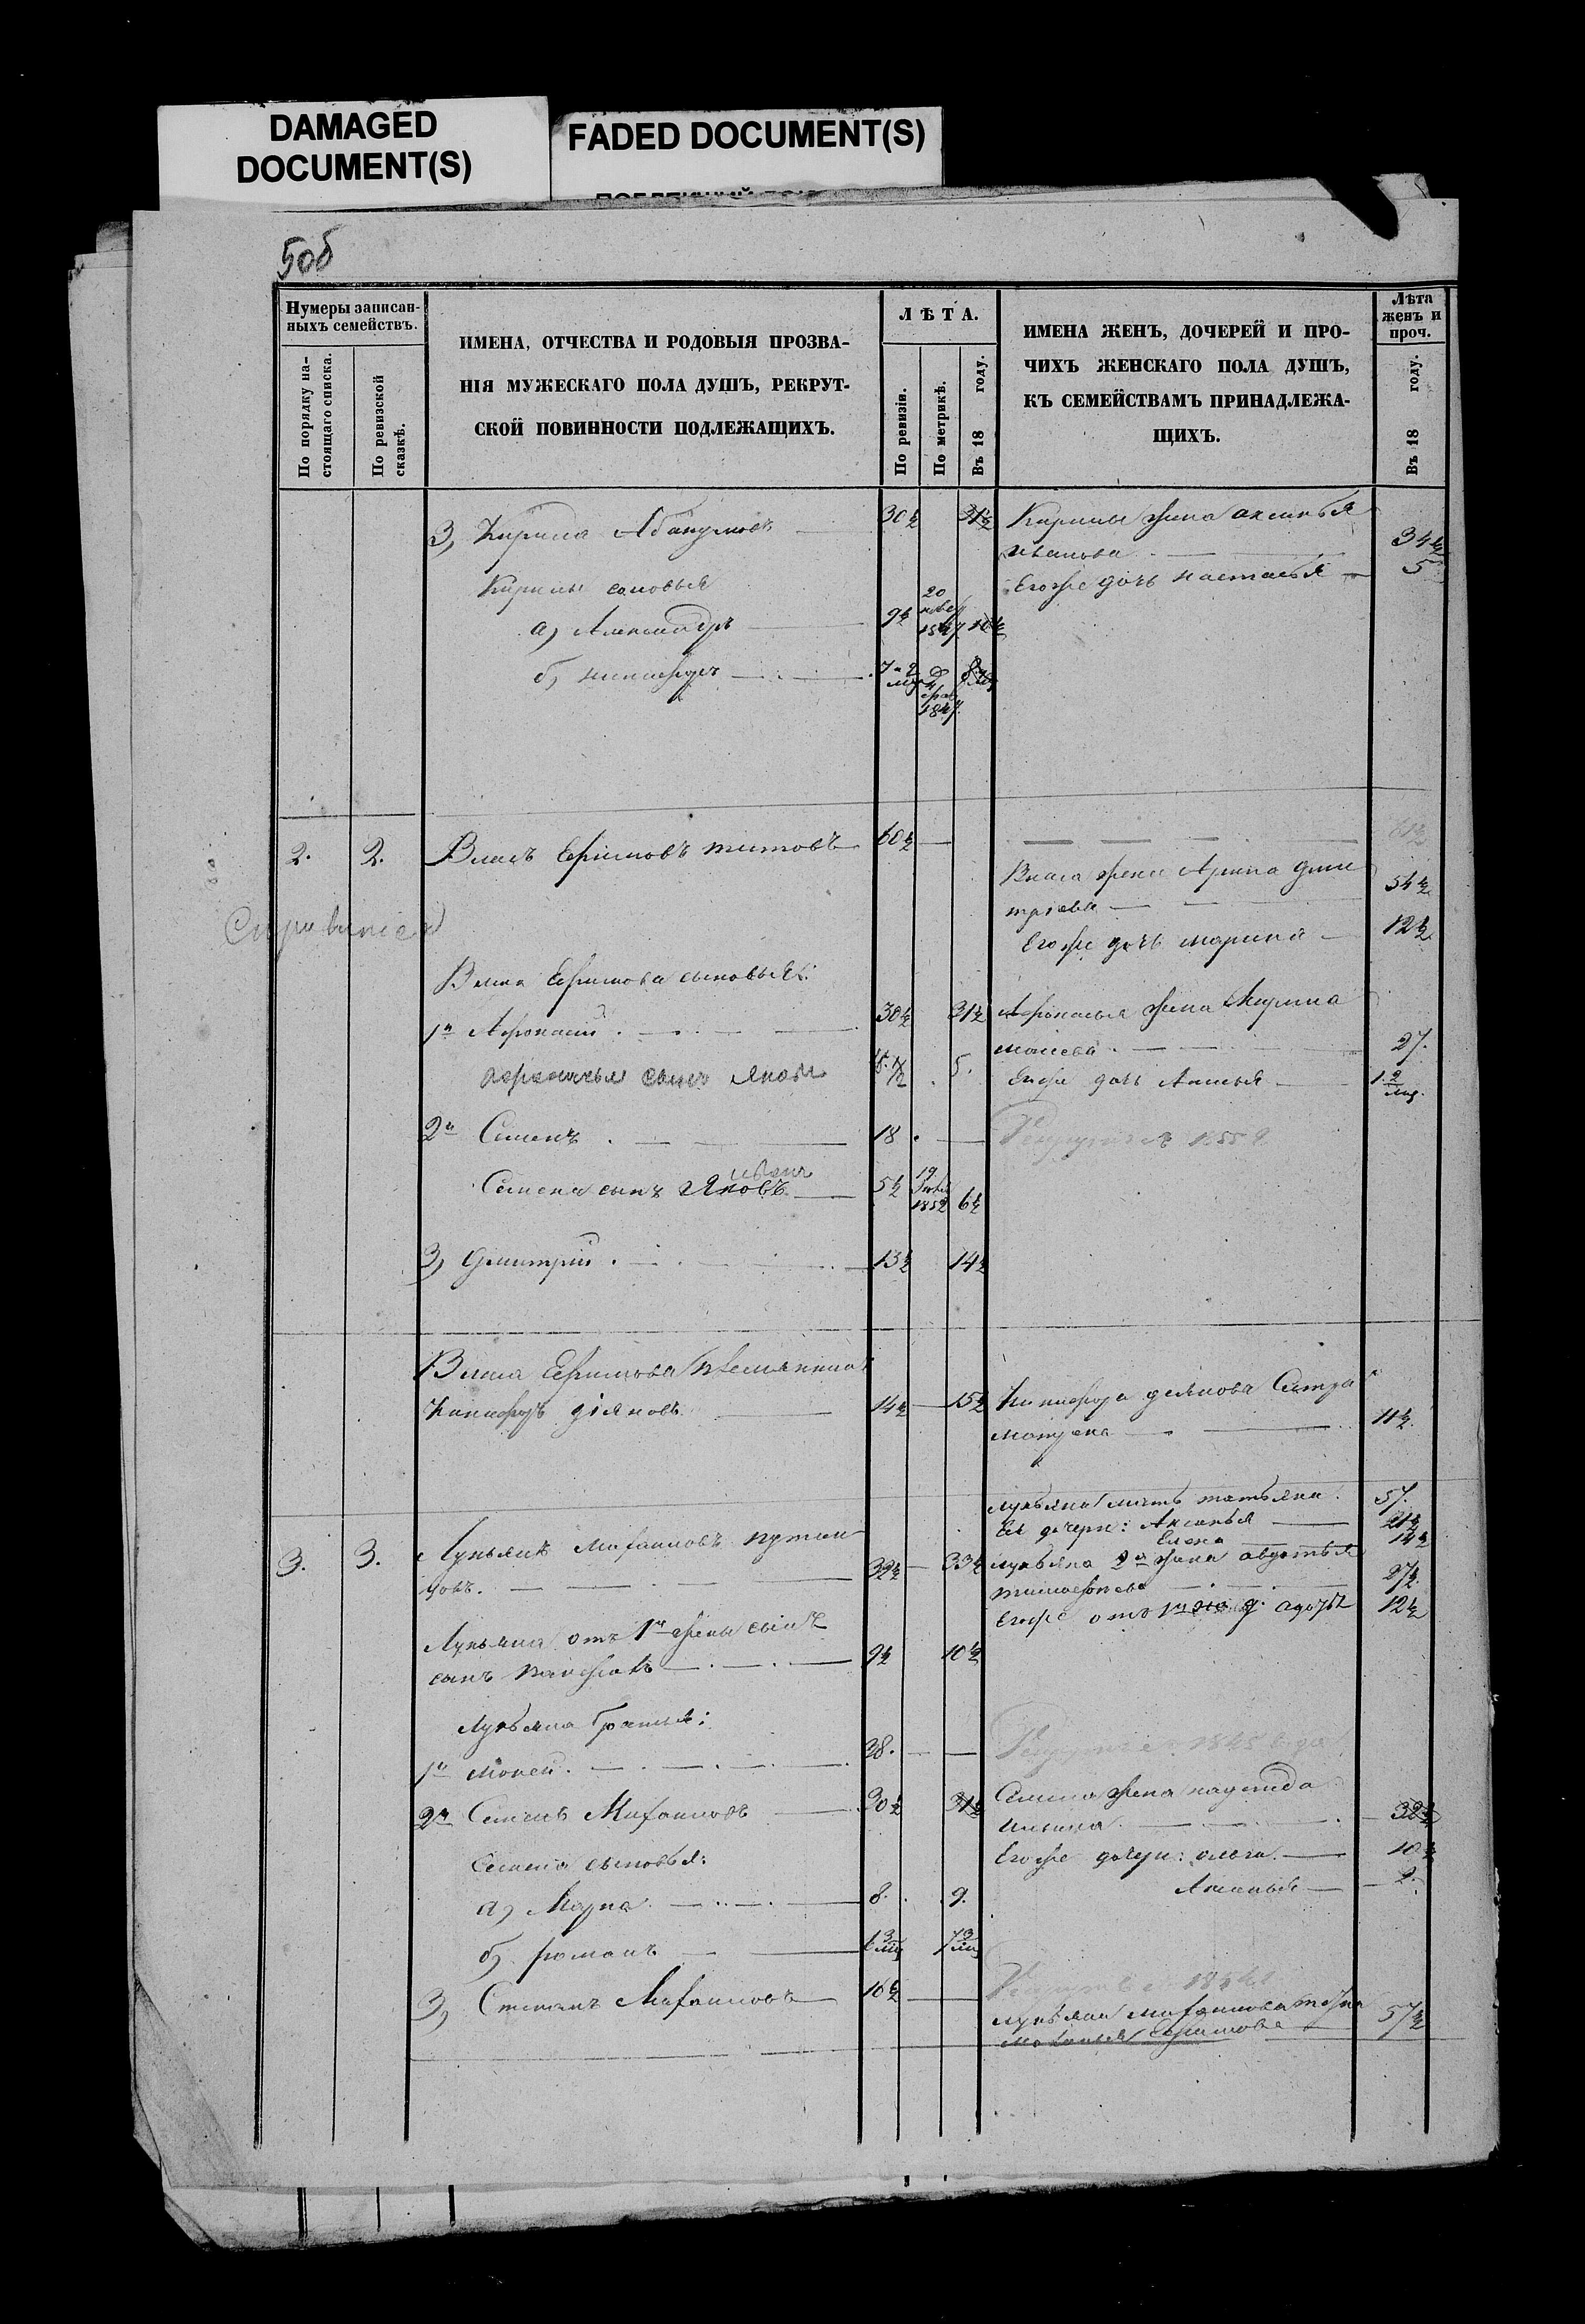 DAMAGED
DOCUMENT(S)
FADED DOCUMENT(S)
50б
Нумеры записан-
ныхъ семействъ.
По порядку на-
стоящаго списка.
По ревизской
сказкѣ.
ИМЕНА, ОТЧЕСТВА И РОДОВЫЯ ПРОЗВА-
НІЯ МУЖЕСКАГО ПОЛА ДУШЪ, РЕКРУТ-
СКОЙ ПОВИННОСТИ ПОДЛЕЖАЩИХЪ.
ЛѢТА.
По ревизіи.
По метрикѣ.
Въ 18 году.
ИМЕНА ЖЕНЪ, ДОЧЕРЕЙ И ПРО-
ЧИХЪ ЖЕНСКАГО ПОЛА ДУШЪ,
КЪ СЕМЕЙСТВАМЪ ПРИНАДЛЕЖА-
ЩИХЪ.
Лѣта
женъ и
проч.
Въ 18 году.
3, Кирила Абакумовъ 30½ 31½ Кирилы жена аксинья
иванова 34½
Кирилы сыновья Егоже дочь настасья 5
а, Александръ 9½ 20 1847 10½
б, никифоръ 7 2 мѣс 4 1847 8
2. 2. Власъ Ефимовъ титовъ 60½ 61½
Власа жена Арина дми
тріева 54½
Егоже дочь марина 12½
Власа Ефимова сыновья:
1й Афонасій 30½ 31½ Афонасья жена Марина
27.
Афонасья сынъ Яковъ 5. Егоже дочь Аксинья 1. 2 мѣс.
2й Семенъ 18 1855
иванъ
Семена сынъ Яковъ 5½ 19 1852 6½
3, Дмитрій 13½ 14½
Власа Ефимова племянникъ
Никифоръ діяновъ 14½ 15½ Никифора деянова Сестра
матрена 11½
Лукьяна мать татьяна 57.
Ее дочери: Аксинья 21½
Елена 14½
3. 3. Лукьянъ Михаиловъ 32½ 33½ Лукьяна 2я жена авдотья
тимофеева 27½
Лукьяна отъ 1й жены сынъ Егоже отъ 1й 12½
сынъ 9½ 10½
Лукьяна братья:
1й Мокей 38. 1845 года
2й Семенъ Михаиловъ 30½ 31½ Семена жена надежда
ильина 32½
Семена сыновья: Егоже дочери: ольга 10½
а, Марка 8. 9. Аксинья 2.
б, романъ 6 3 мѣс 7 3 мѣс
3, Степанъ Михаиловъ 16½ 1854
Лукьяна Михаилова
Ефимова 57½